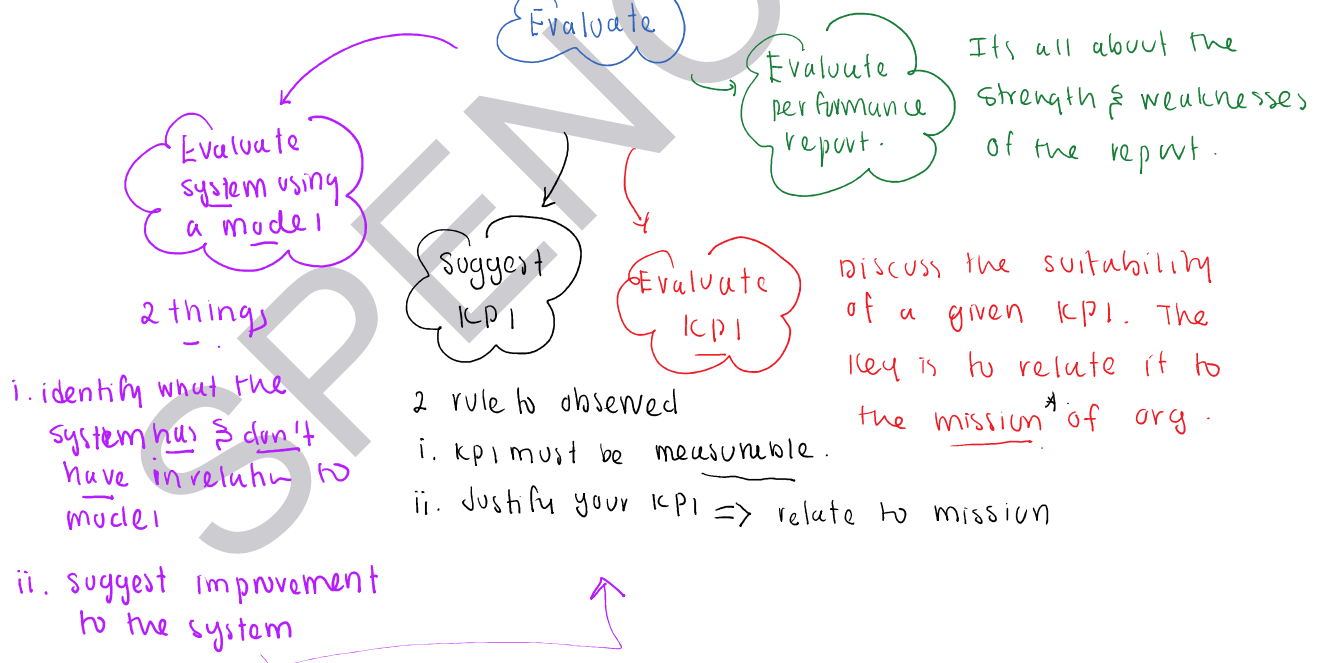 Evaluate
Evaluate
performance
report.
Its all about the
strength & weaknesses
of the report.
Evaluate
system using
a model
2 things
i. identify what the
system has & don't
have in relation to
model
ii. suggest improvement
to the system
suggest
KPI
2 rule to observed
i. KPI must be measurable.
ii. Justify your KPI => relate to mission
Evaluate
KPI
Discuss the suitability
of a given KPI. The
key is to relate it to
the mission* of org.